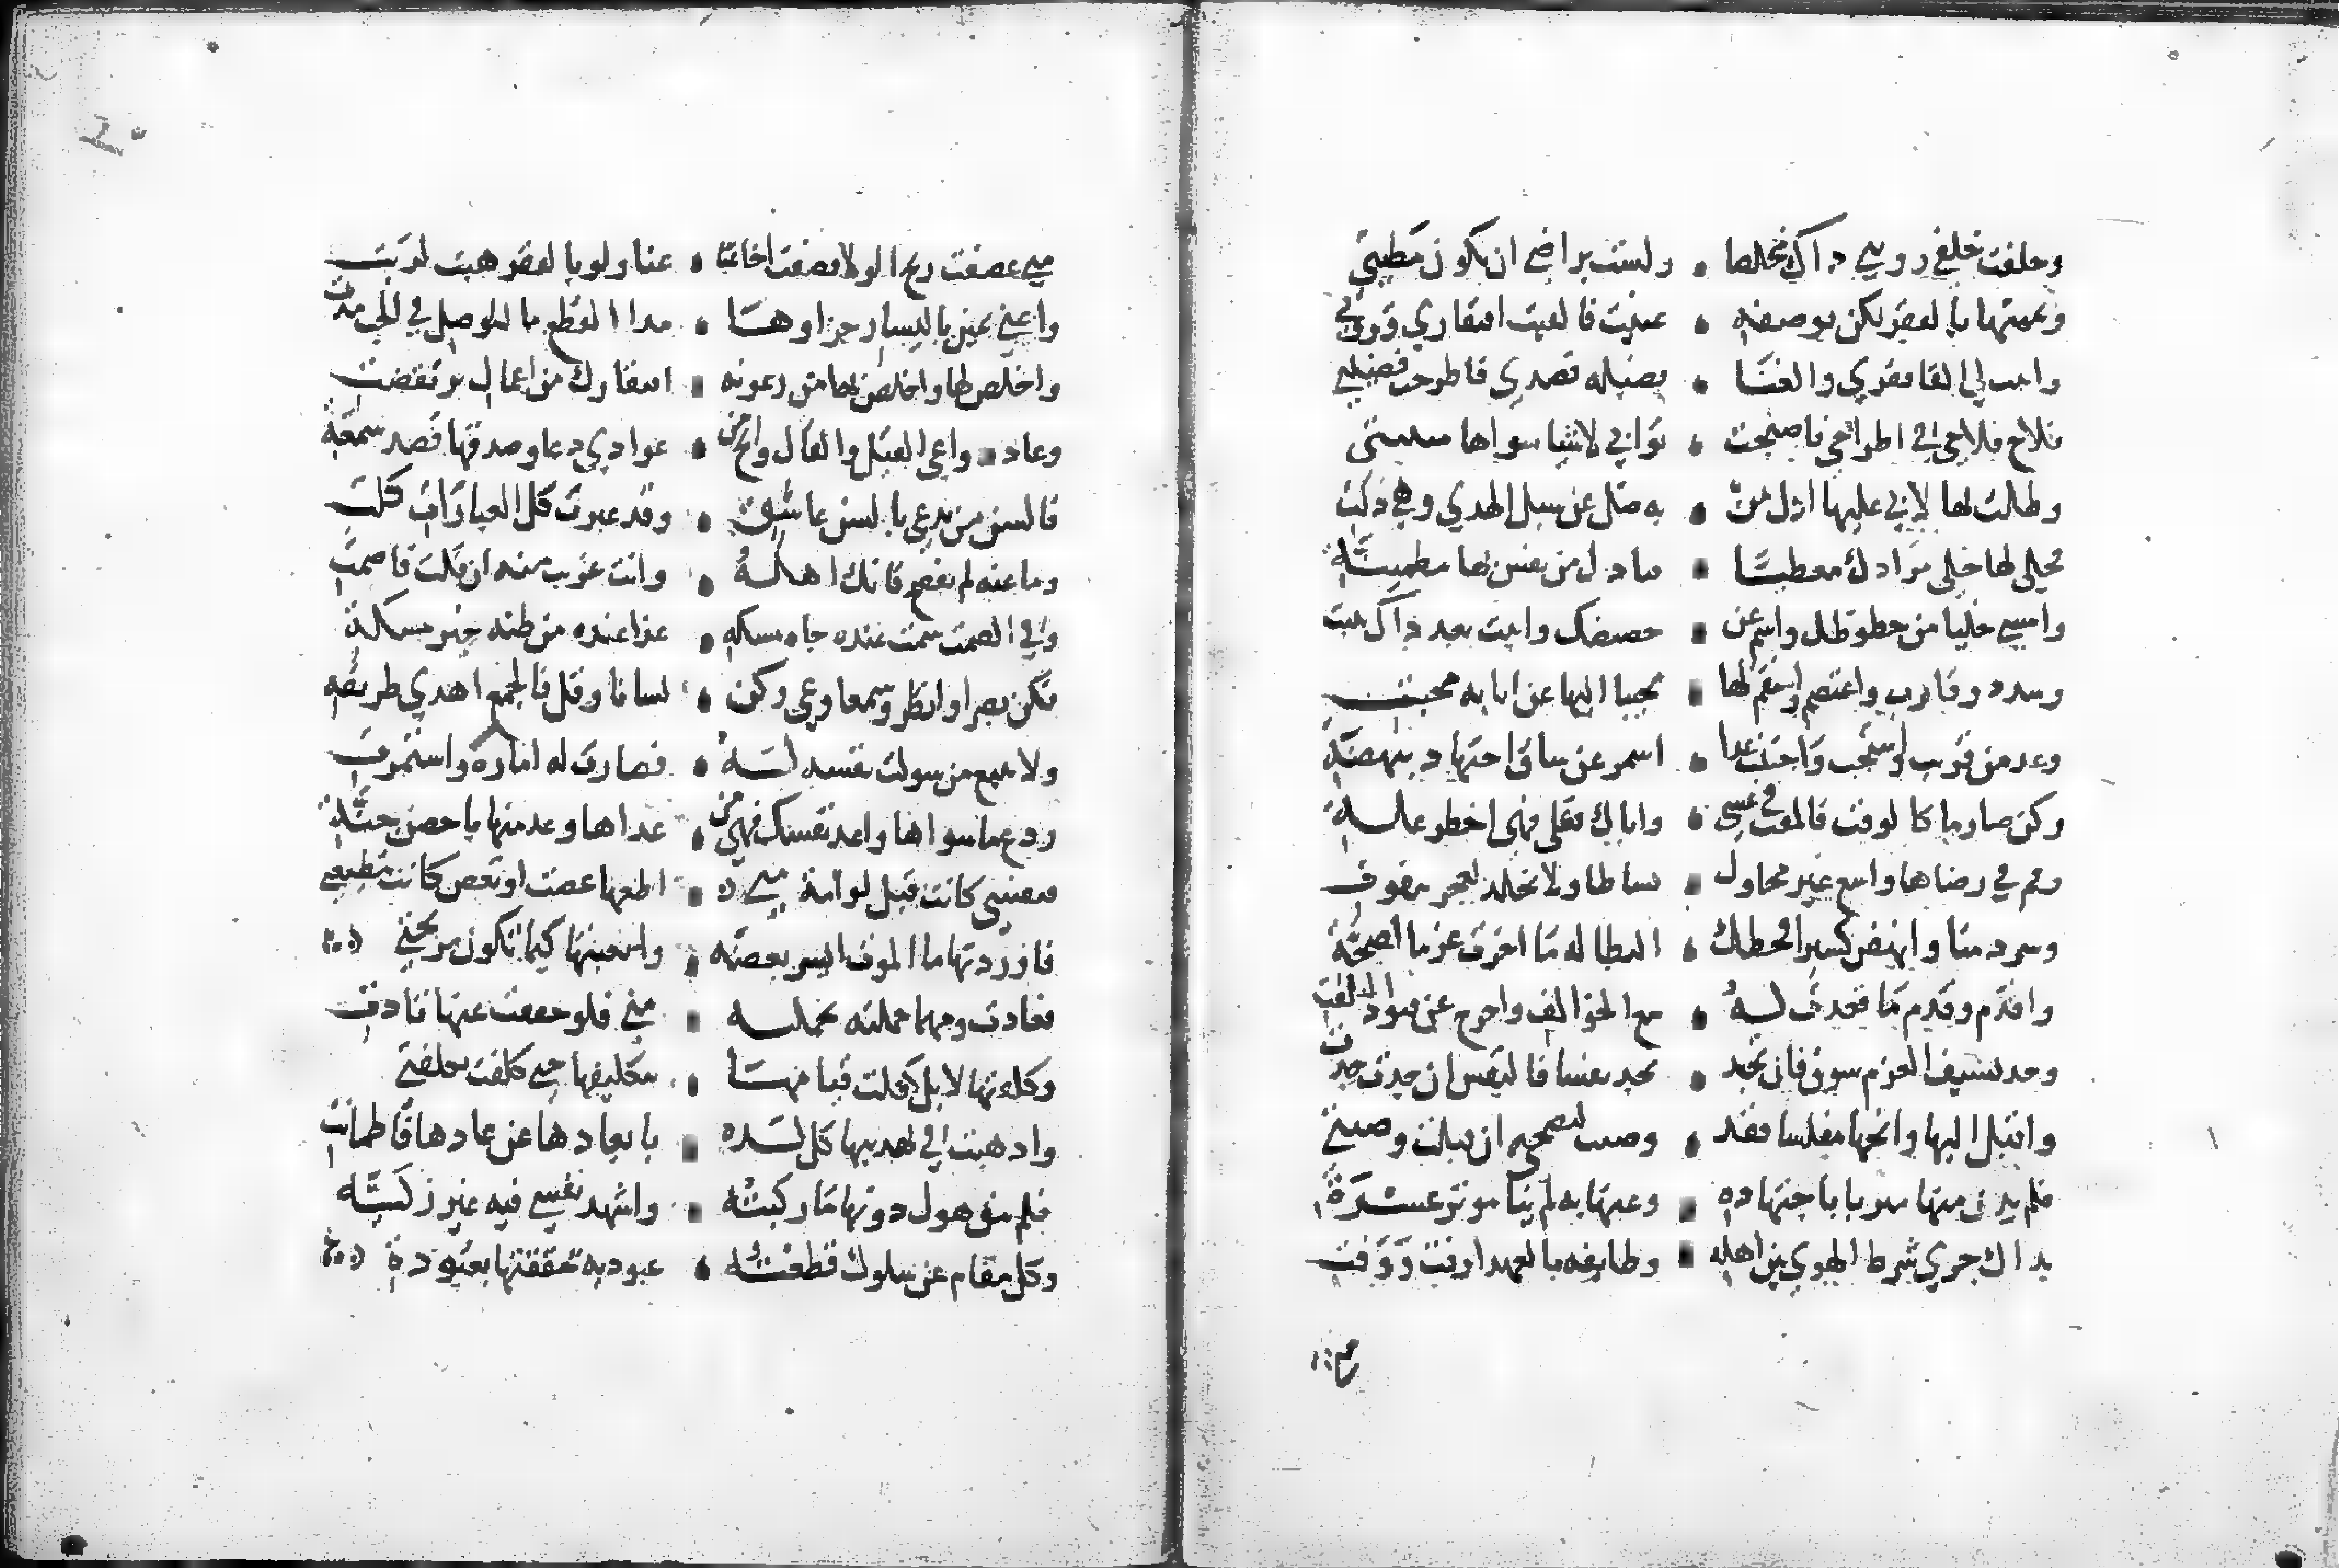 وخلفت خلفي رويتي ذاك مخلصا ۰ ولست براضي ان تكون مطيتي
ويممتها بالفقر لكن بوصفه ۰ غنيت فالقيت افتقاري وثروتي
واثبت لي القا فقري والغنا ۰ فضيله قصدي فاطرحت فضيلتي
فلاح فلاحي في اطراحي فاصبحت ۰ ثوابي لا شيا سواها مثيبتي
وظلت لها لا بي عليها ادل من ۰ به ضل عن سبل الهدي وهي دلت
فخلي لها خلي مرادك معطيا ۰ قيادك من نفس لها مطمينة
وامسي خليا من حظوظك واسم عن ۰ حضيضك واثبت بعد ذاك تنبت
وسدد وقارب واعتصم واستقم لها ۰ مجيبا اليها عن انابه مخبت
وعد من قريب واستجب واجتنب غدا ۰ اشمر عن ساق اجتهاد بنهضة
وكن صارما كالوقت فالمقت في عسى ۰ واياك علي فهي اخطر علة
وقم في رضاها واسع غير محاول ۰ نشاطا ولا تخلد لعجز مفوت
وسر زمنا وانهض كسيرا فحظك ۰ البطاله ما اخرت عزما لصحة
واقدم وقدم ما قعدت له ۰ مع الخوالف واخرج عن قيود التلفت
وجد بسيف العزم سوف فان تجد ۰ تجد نفسا فالنفس ان جدت جدت
واقبل اليها وانحها مفلسا فقد ۰ وصيت لنصحي ان قبلت وصيتي
فلم يدن منها موسر باجتهاده ۰ وعنها به لم ينا موثر عسرة
بذاك جري شرط الهوي بين اهله ۰ وطايفه بالعهد اوفت فوفت
متى عصفت ريح الولا قصفت اخا غنا ۰ غنا ولو بالفقر هبت لربت
واغني يمين باليسار جزاوها ۰ مدا القطع ما للوصل في الحب مدت
واخلص لها واخلص بها من رعونه ۰ افتقارك من اعمال بر تزكت
وعاد دواعي القيل والقال وانج من ۰ عوادي دعاو صدقها قصد سمعة
فالسن من يدعي بالسن عاشق ۰ وقد عبرت كل العبارات كلت
وما عنه لم تفصح فانك اهله ۰ وانت غريب عنه ان قلت فاصمت
وفي الصمت سمت عنده جاه مسكه ۰ غدا عنده من ظنه خير مسكة
فكن بصرا وانظر وسمعا وعي وكن ۰ لسانا وقل فالجمع اهدي طريقه
ولا تتبع من سولت نفسه له ۰ فصارت له اماره واستمرت
ودع ما سواها واعد نفسك فهي من ۰ عداها وعد منها باحصن جنة
فنفسي كانت قبل لوامة متى ۰ اطعها عصت او تعص كانت مطيعتي
فاوردتها ما الموت ايسر بعضه ۰ واتعبتها كيما تكون مريحتي
فعادت ومهما حملته تحملته ۰ مني فلو خففت عنها تاذت
وكلفتها لا بل كفلت قيامها ۰ بتكليفها حتى كلفت بكلفتي
واذهبت في تهذيبها كل لذه ۰ بابعادها عن عادها فاطمانت
فلم يبق هول دونها ما ركبته ۰ واشهد نفسي فيه غير زكية
وكل مقام عن سلوك قطعته ۰ عبوديه حققتها بعبودة